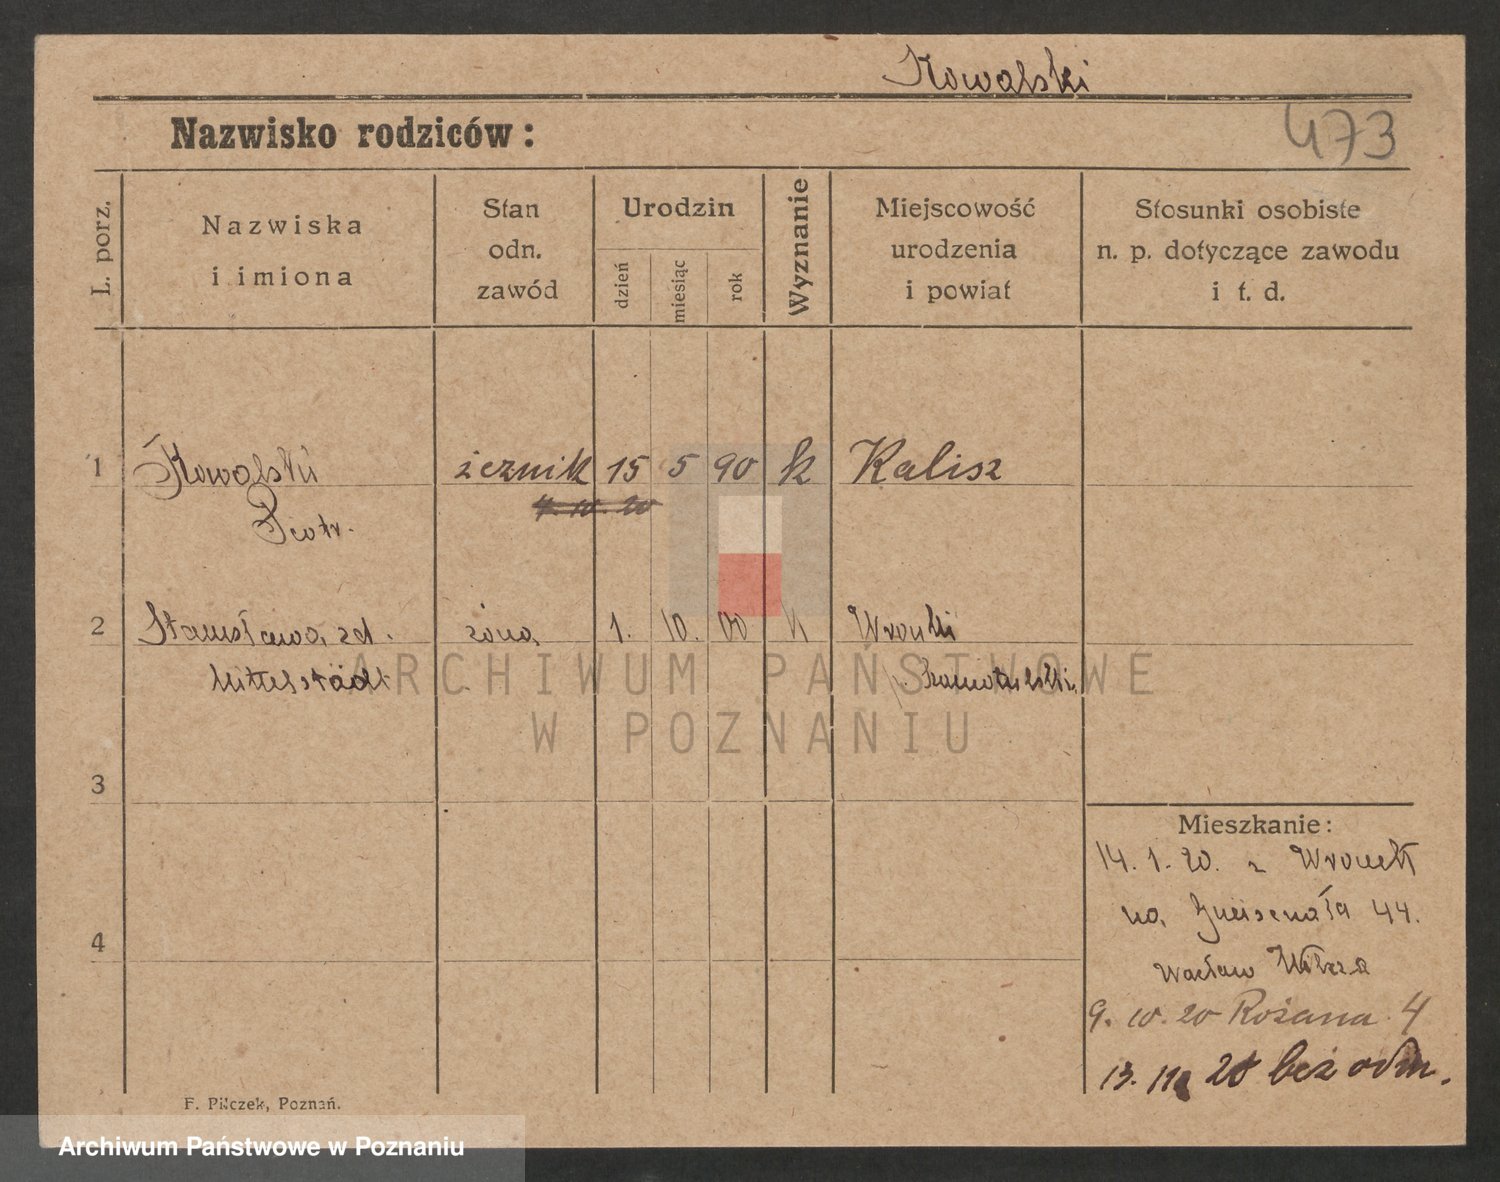 Kowalski
Nazwisko rodziców:
473
L. porz.
Nazwiska
i imiona
Stan
odn.
zawód
Urodzin
dzień
miesiąc
rok
Wyznanie
Miejscowość
urodzenia
i powiat
Stosunki osobiste
n. p. dotyczące zawodu
i t. d.
1 Kowalski 15 5 90 k Kalisz
Piotr.
4. 10. 20
2 Stanisława zd. żona 1. 10. 00 k Wronki
Mittelstädt
3
Mieszkanie:
14. 1. 20. z Wronek
na Gneisenała 44.
Wacław
4
9. 10. 20 Różana 4
13. 11. 20 bez odm.
F. Pilczek, Poznań.
ARCHIWUM PAŃSTWOWE
W POZNANIU
Archiwum Państwowe w Poznaniu